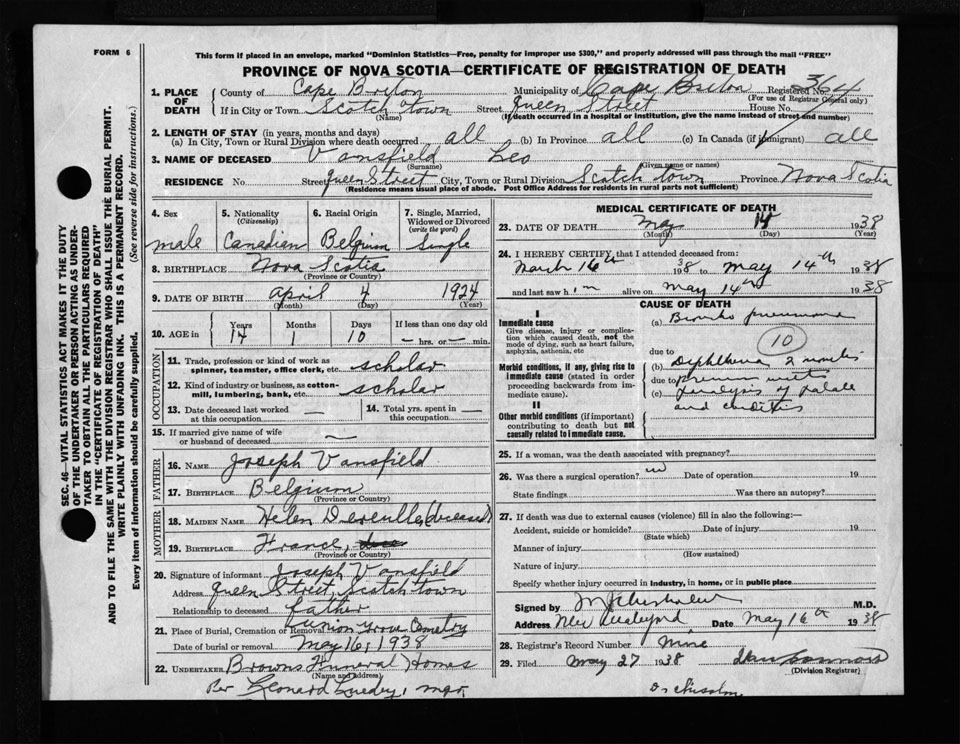 FORM 6
This form if placed in an envelope, marked "Dominion Statistics—Free, penalty for improper use $300," and properly addressed will pass through the mail "FREE"
PROVINCE OF NOVA SCOTIA—CERTIFICATE OF REGISTRATION OF DEATH
1. PLACE OF DEATH County of Cape Breton Municipality of Cape Breton Registered No. 364
(For use of Registrar General only)
If in City or Town Scotch town Street Queen Street House No.
(Name) (If death occurred in a hospital or institution, give the name instead of street and number)
2. LENGTH OF STAY (in years, months and days)
(a) In City, Town or Rural Division where death occurred all (b) In Province all (c) In Canada (if immigrant) all
3. NAME OF DECEASED Vansfield Leo
(Surname) (Given name or names)
RESIDENCE No. Street Queen Street City, Town or Rural Division Scotch town Province Nova Scotia
(Residence means usual place of abode. Post Office Address for residents in rural parts not sufficient)
4. Sex 5. Nationality (Citizenship) 6. Racial Origin 7. Single, Married, Widowed or Divorced (write the word)
male Canadian Belgium Single
8. BIRTHPLACE Nova Scotia
(Province or Country)
9. DATE OF BIRTH April 4 1924
(Month) (Day) (Year)
10. AGE in Years Months Days If less than one day old
14 1 10 — hrs. or — min.
OCCUPATION
11. Trade, profession or kind of work as spinner, teamster, office clerk, etc. scholar
12. Kind of industry or business, as cotton-mill, lumbering, bank, etc. scholar
13. Date deceased last worked at this occupation — 14. Total yrs. spent in this occupation. —
15. If married give name of wife or husband of deceased —
FATHER
16. NAME Joseph Vansfield
17. BIRTHPLACE Belgium
(Province or Country)
MOTHER
18. MAIDEN NAME Helen (deceased)
19. BIRTHPLACE France,
(Province or Country)
20. Signature of informant Joseph Vansfield
Address Queen Street, Scotch town
Relationship to deceased father
21. Place of Burial, Cremation or Removal Union Grove Cemetry
Date of burial or removal May 16, 1938
22. UNDERTAKER Browns Funeral Homes
(Name and address)
Per Leonard mgr.
MEDICAL CERTIFICATE OF DEATH
23. DATE OF DEATH May 14 1938
(Month) (Day) (Year)
24. I HEREBY CERTIFY, that I attended deceased from:
March 16th 1938 to May 14th 1938
and last saw him alive on May 14th 1938
CAUSE OF DEATH
I
Immediate cause
Give disease, injury or complication which caused death, not the mode of dying, such as heart failure, asphyxia, asthenia, etc
(a) Bronko pneumonia
10
due to
Morbid conditions, if any, giving rise to immediate cause (stated in order proceeding backwards from immediate cause).
(b) Diphtheria 2 months
due to
(c) Paralysis of palate
and
II
Other morbid conditions (if important) contributing to death but not causally related to immediate cause.
25. If a woman, was the death associated with pregnancy?
26. Was there a surgical operation? no Date of operation 19
State findings Was there an autopsy?
27. If death was due to external causes (violence) fill in also the following:—
Accident, suicide or homicide? Date of injury 19
(State which)
Manner of injury
(How sustained)
Nature of injury
Specify whether injury occurred in industry, in home, or in public place
Signed by M.D.
Address New Waterford Date May 16th 1938
28. Registrar's Record Number Nine
29. Filed May 27 1938
(Division Registrar)
Dr Chisolm
SEC. 46—VITAL STATISTICS ACT MAKES IT THE DUTY OF THE UNDERTAKER OR PERSON ACTING AS UNDERTAKER TO OBTAIN ALL THE PARTICULARS REQUIRED IN THE "CERTIFICATE OF REGISTRATION OF DEATH"
AND TO FILE THE SAME WITH THE DIVISION REGISTRAR WHO SHALL ISSUE THE BURIAL PERMIT.
WRITE PLAINLY WITH UNFADING INK. THIS IS A PERMANENT RECORD.
Every item of information should be carefully supplied. (See reverse side for instructions.)